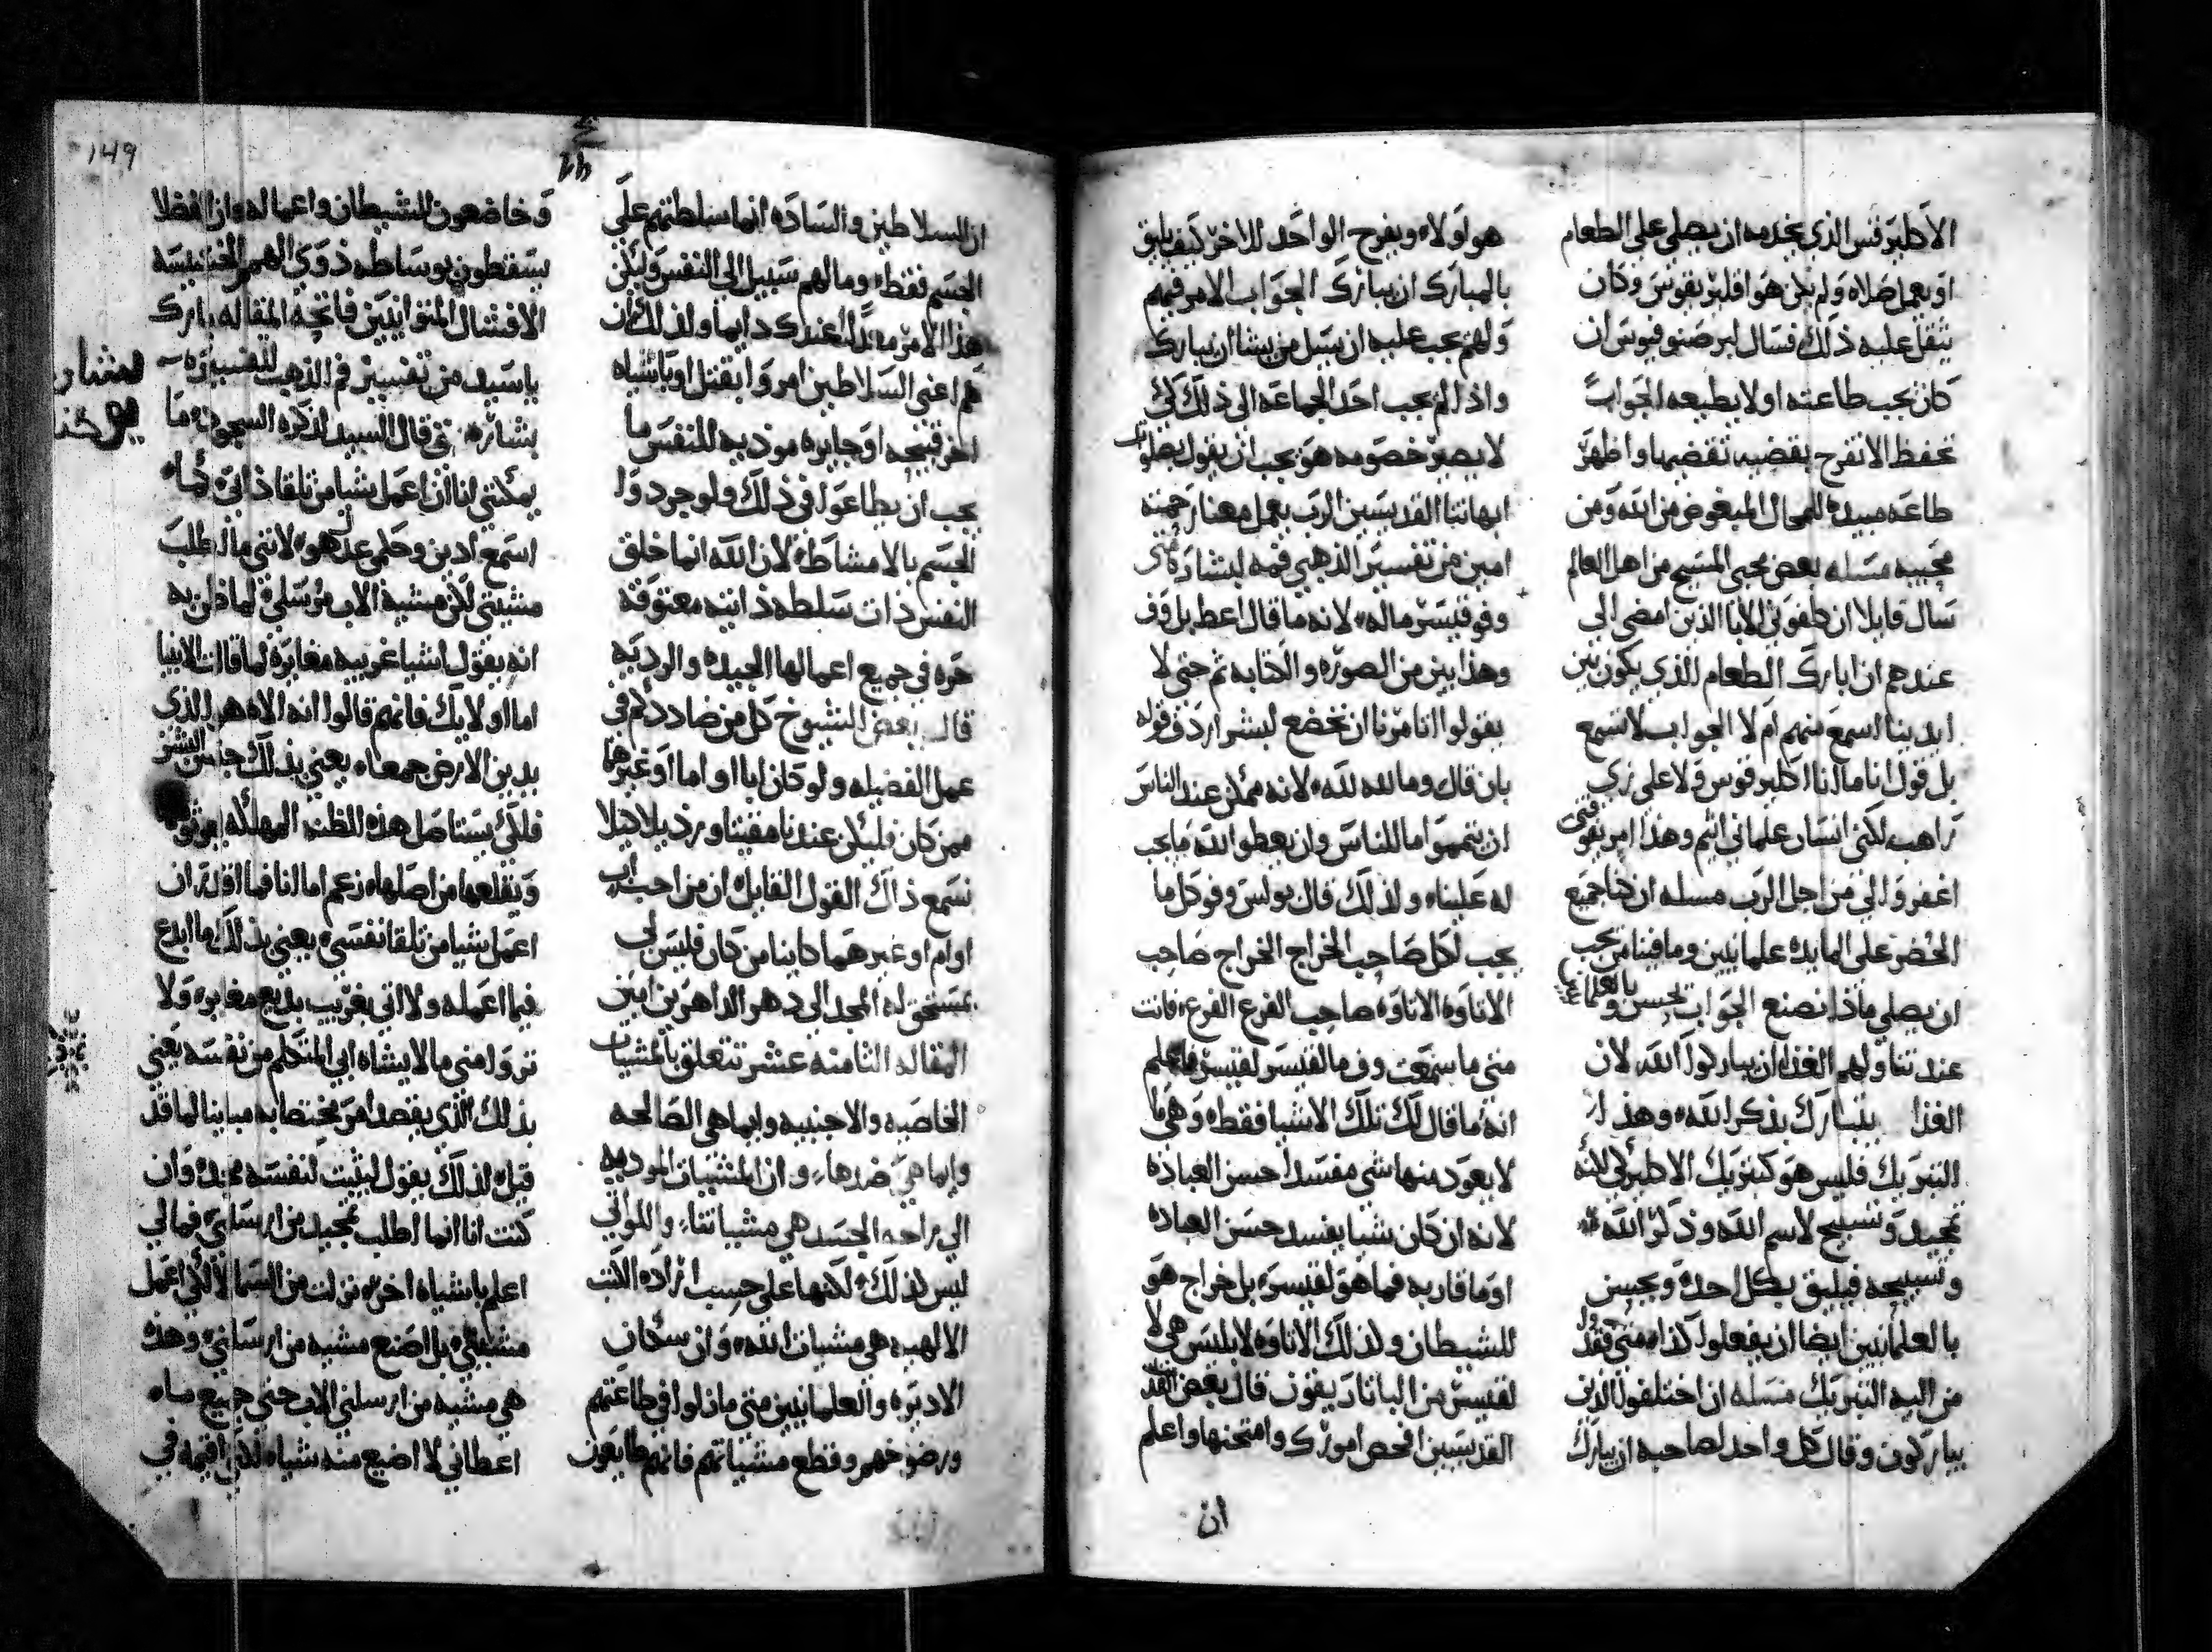 الاكليرقس الذي يخدمه ان يصلي علي الطعام
او يعمل صلاه ولم يكن هو اقليريقوس وكان
يثقل عليه ذلك فسال لبرصنوفيوس ان
كان يجب طاعته اولا يطيعه الجواب
تحفظ الا تفرح بقضيه تقضيها واظهر
طاعه مبيده للمحال المبغوض من الله ومن
محبيه مسله بعض محبي المسيح من اهل العالم
سال قايلا ان كلفوني الابا الذين امضي الي
عندهم ان ابارك الطعام الذي يكون بين
ايدينا اسمع منهم ام لا الجواب لا تسمع
بل قول انا ما انا اكليرقوس ولا علي زي
راهب لكني انسان علماني اثيم وهذا امر يفوقني
اغفروا لي من اجل الرب مسله ان كنا جميع
الحضر علي المايده علمانيين وما فينا من يجب
ان يصلي ماذا نصنع الجواب يحسن بالعلمانيين
عند تناولهم الغذا ان يباركوا الله لان
الغذا يتبارك بذكر الله وهذا
التبريك فليس هو كتبريك الاكليركي لانه
تمجيد وتسبيح لاسم الله وذكر الله
وتسبيحه فيليق بكل احد ويحسن
بالعلمانيين ايضا ان يفعلوا كذا متي فقدوا
من اليه التبريك مسله ان اختلفوا الذين
يباركون وقال كل واحد لصاحبه ان يبارك
هو لولاه ويفرح الواحد للاخر كيف يليق
بالمبارك ان يبارك الجواب الامر فيهم
ولهم يجب عليه ان يسل من يشا ان يبارك
واذا لم يجب احد الجماعه الي ذلك لكي
لا يصير خصومه هو يجب ان يقول بصلوات
ابهاتنا القديسين الرب يعمل معنا رحمته
امين من تفسير الذهبي فمه لبشاره متي
وفو قيسر ماله لانه ما قال اعط بل وف
وهذا بين من الصوره والكتابه ثم حتي لا
يقولوا انا مرنا ان نخضع لبشر اردف قوله
بان قال وما لله لله لانه ممكن عند الناس
ان يتمموا ما للناس وان يعطوا الله ما يجب
له علينا ولذلك قال بولس وفو كل ما
يجب لكل صاحب الخراج الخراج صاحب
الاتاوه الاتاوه صاحب الفزع الفزع فانت
متي ما سمعت وف ما لقيسر لقيسر فاعلم
انه ما قال لك تلك الاشيا فقط وهي ما
لا يعود منها شي مفسدا حسن العباده
لانه ان كان شيا يفسد حسن العباده
او ما قاربه فما هو لقيسر بل خراج هو
للشيطان ولذلك الاتاوه لابليس هي لا
لقيسر من الباتاريقون قال بعض
القديسين افحص امورك وامتحنها واعلم
ان
149
ان السلاطين والساده انما سلطتهم علي
الجسم فقط وما لهم سبيل الي النفس وليكن
هذا الامر معدا عندك دايما ولذلك ان
هم اعني السلاطين امروا بقتل او باشياه
اخر قبيحه او جايره موذيه للنفس ما
يجب ان يطاعوا في ذلك ولو جردوا
الجسم بالامشاط لان الله انما خلق
النفس ذات سلطه ذاتيه معتوقه
حره في جميع اعمالها الجيده والرديه
قال بعض الشيوخ كل من صاددكم في
عمل الفضيله ولو كان ابا او اما او غيرهما
ممن كان فليكن عندنا مقيتا ورذيلا كيلا
نسمع ذاك القول القايل ان من احب اب
او ام او غيرهما كاينا من كان فليس لي
بمستحق له المجد الي دهر الداهرين امين
المقاله الثامنه عشر تتعلق بالمشيات
الخاصيه والاجنبيه وايما هي الصالحه
وايما هي ضدها وان المشيات الموديه
الي راحه الجسد هي مشياتنا واللواتي
ليس كذلك لكنها علي حسب اراده الكتب
الالهيه هي مشيات الله وان سكان
الاديره والعلمانيين متي مازلوا في طاعتهم
ورضوخهم وقطع مشياتهم فانهم طايعون
وخاضعون للشيطان واعماله وان الفضلا
يسقطون بوساطه ذوي الهمم الخسيسه
الافشال المتوانيين فاتحه المقاله بارك
ياسيد من تفسير فم الذهب لتفسيره
بشاره ثم قال السيد لذكره السجود ما
يمكنني انا ان اعمل شيا من تلقا ذاتي كما
اسمع ادين وحكمي عدل هو لانني ما اطلب
مشيتي لكن مشية الاب مرسلي لما ظن به
انه يقول اشيا غريبه مغايره لما قالت الانبيا
اما اولايك فانهم قالوا انه الاه هو الذي
يدين الارض جمعا يعني بذلك جنس البشر
فلكي يستاصل هذه الظنه المهلكه
ويقلعها من اصلها زعم اما انا فما اقدر ان
اعمل شيا من تلقا نفسي يعني بذلك ما ابدع
فيما اعمله ولا اتي بغريب بديع مغايره ولا
تروا مني ما لا يشاه ابي المتكلم من نفسه يعني
بذلك الذي يقصد امر مختصا به مباينا لما قد
قيل لذلك يقول ليثبت لنفسه مجده وان
كنت انا انما اطلب تمجيد من ارسلني فما لي
اعلم باشياه اخر نزلت من السما لا لكي اعمل
مشيتي بل اصنع مشيه من ارسلني وهذه
هي مشيه من ارسلني الاب حتي جميع ماه
اعطاني لا اضيع منه شياه لكن اقيمه في